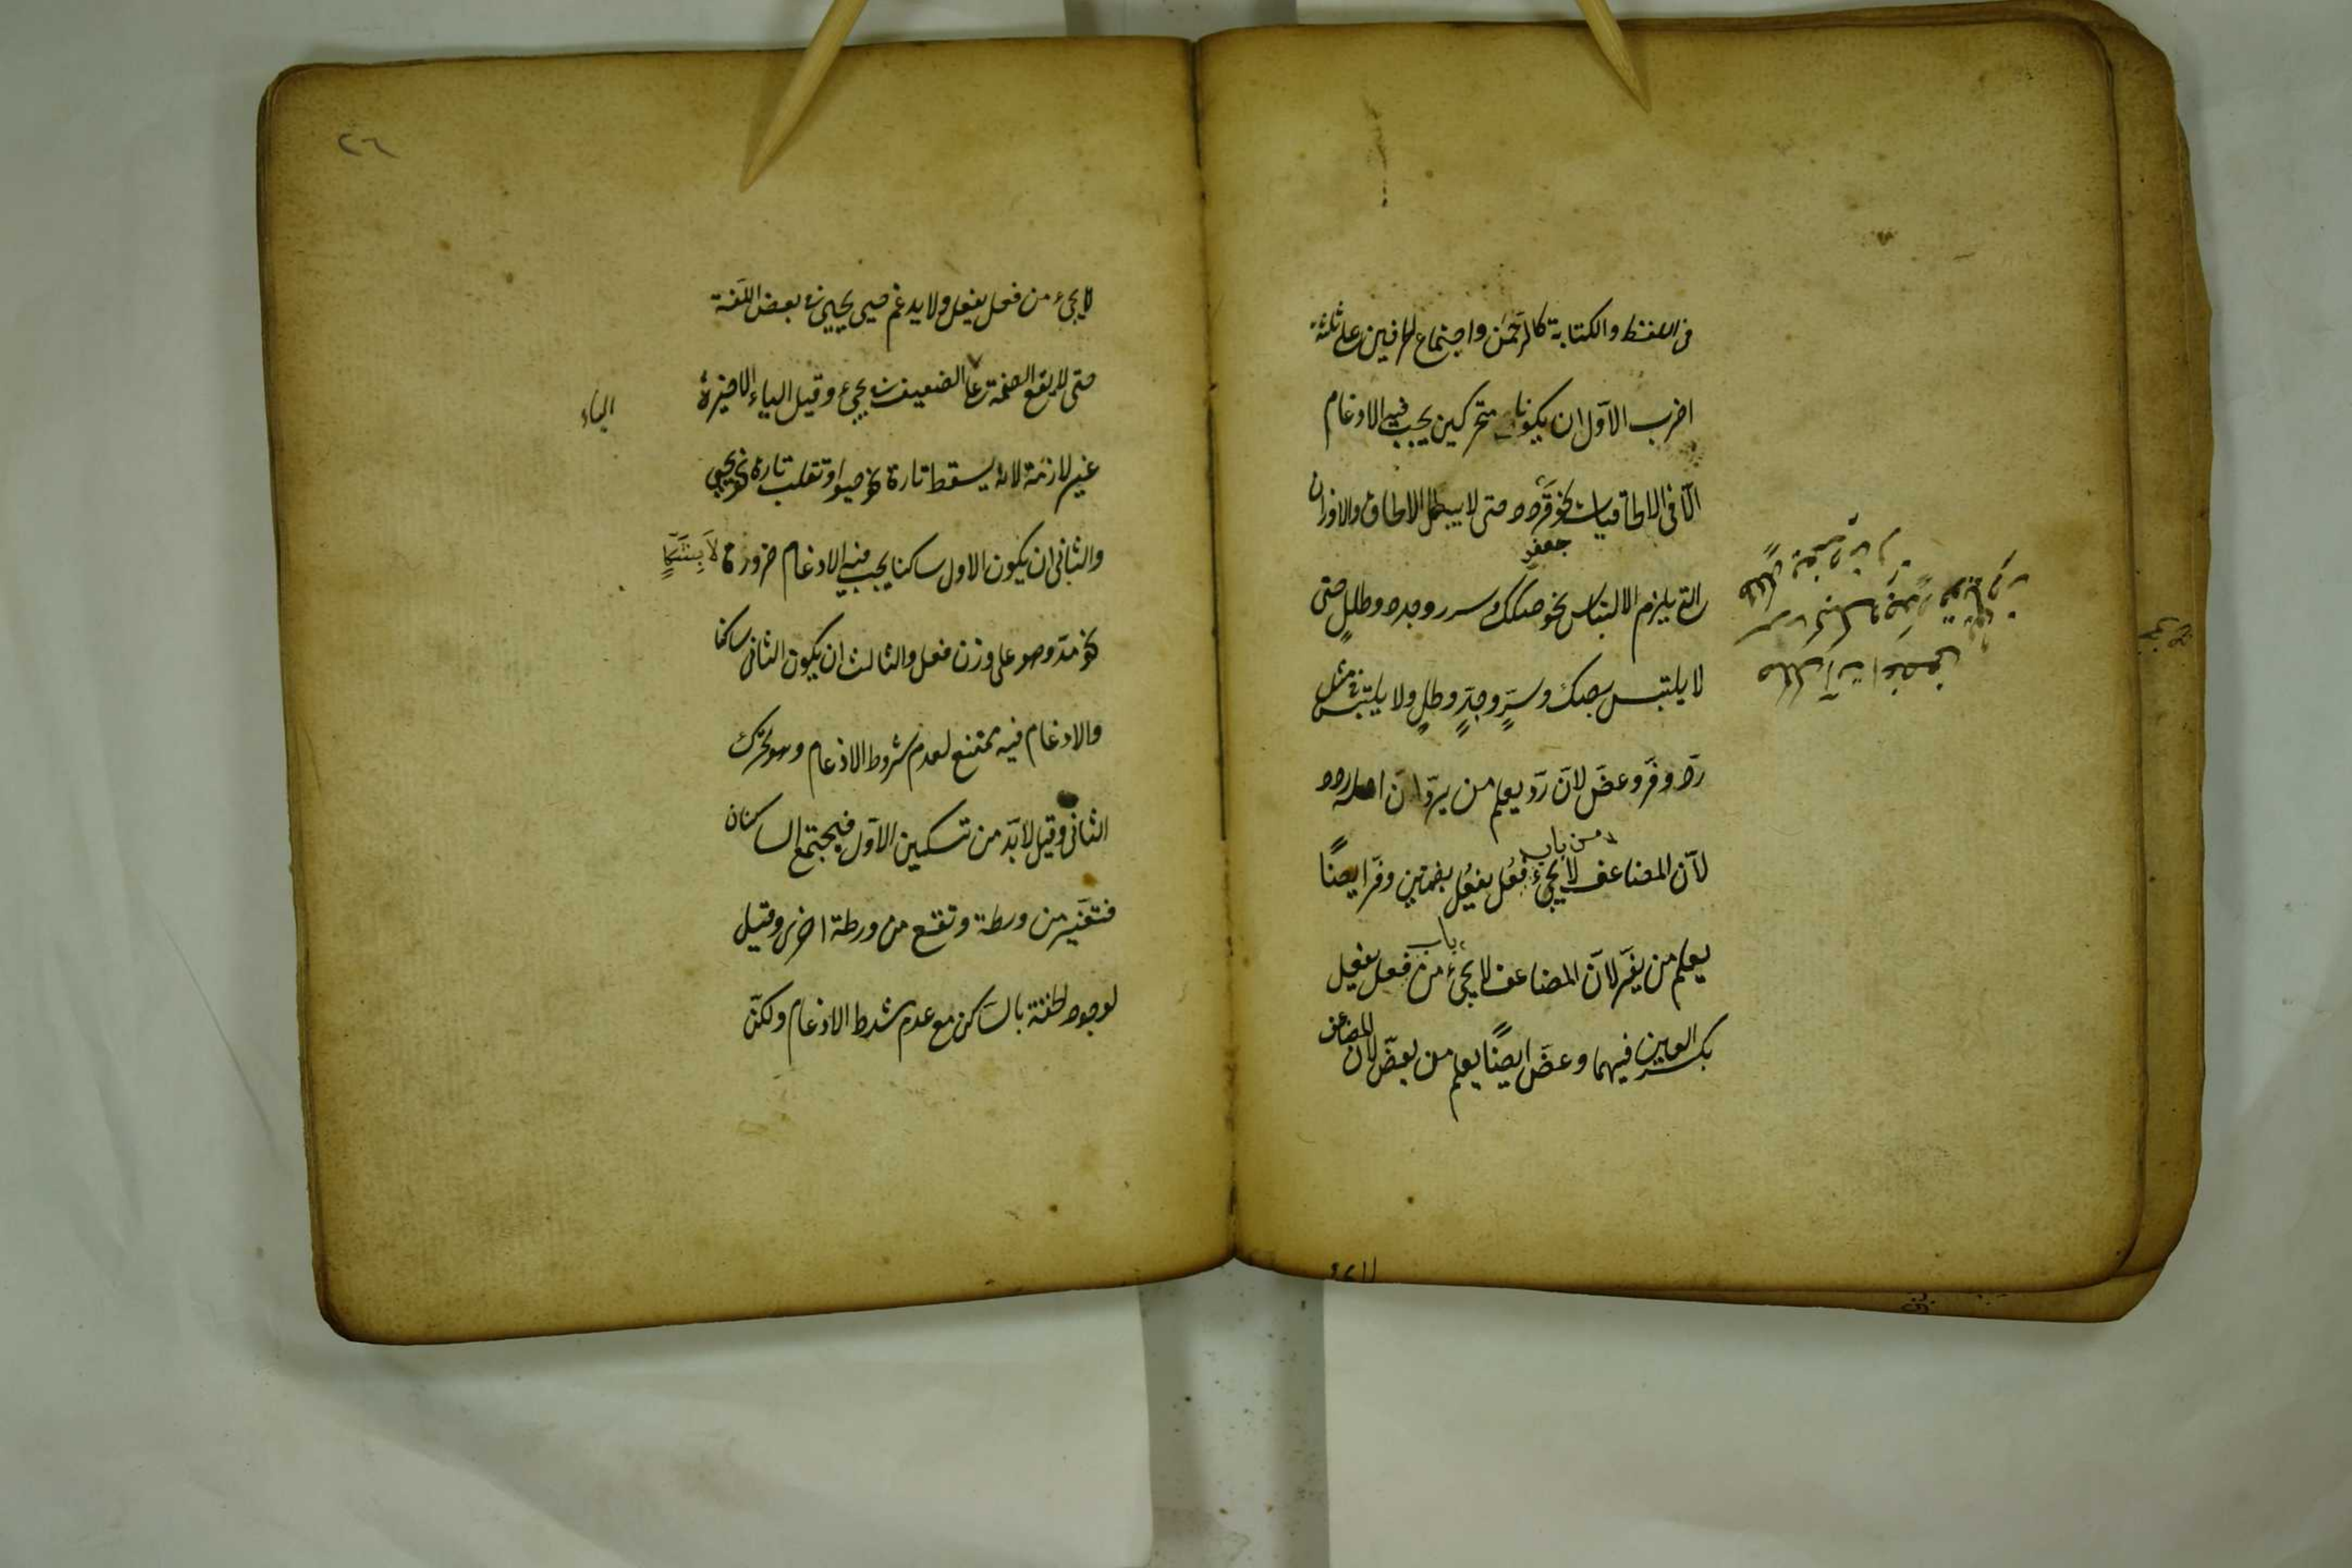 فى اللفظ والكتابة كالرحمن واجتماع الحرفين على ثلثة
اضرب الاوّل ان يكونا متحركين يجب فيه الادغام
الّا فى الالحاقيات نحو قردد حتى لا يبطل الالحاق والاوزان
جعفر
التى يلزم الالتباس نحو صكك وسرر وجدد وطلل حتى
لا يلتبس بصك وسرٍّ وجدٍّ وطلٍّ ولا يلتبس فى مثل
ردّ وفرّ وعضّ لانّ ردّ يعلم من يردّ انّ اصله ردد
من باب
لانّ المضاعف لا يجىء فعُل يفعُل بضمتين وفرّ ايضًا
باب
يعلم من يفرّ لانّ المضاعف لا يجىء من فعل يفعل
بكسر العين فيهما وعضّ ايضًا يعلم من يعضّ لانّ المضاعف
لا يجىء
٢٦
لا يجىء من فعل يفعل ولا يدغم حيى يحيى فى بعض اللّغة
حتى لا يقع الضمة على الضعيف فى يحيى وقيل الياء الاخيرة
الياء
غير لازمة لانه يسقط تارة نحو حيوا وتقلب تارة نحو يحيى
والثانى ان يكون الاول ساكنا يجب فيه الادغام ضرورة
نحو مدّ وهو على وزن فعل والثالث ان يكون الثانى ساكنا
والادغام فيه ممتنع لعدم شروط الادغام وهو تحرك
الثانى وقيل لابدّ من تسكين الاوّل فيجتمع الساكنان
فتفرّ من ورطة وتقع من ورطة اخرى وقيل
لوجود الخفة بالساكن مع عدم شرط الادغام ولكن